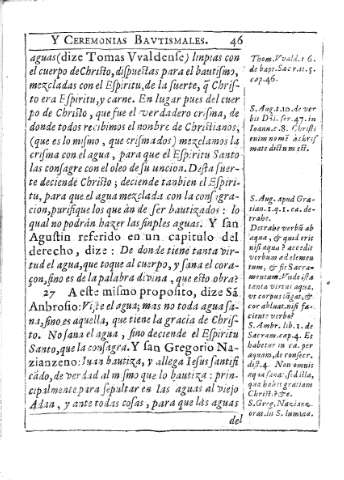 Y CEREMONIAS BAVTISMALES. 46
aguas (dize Tomas Vvaldense) limpias con
el cuerpo de Christo, dispuestas para el bautismo,
mezcladas con el Espiritu, de la suerte, q̃ Chris-
to era Espiritu, y carne. En lugar pues del cuer
po de Christo, que fue el verdadero crisma, de
donde todos recibimos el nombre de Christianos,
(que es lo mismo, que crismados) mezclamos la
crisma con el agua, para que el Espiritu Santo
las consagre con el oleo de su uncion. Desta suer-
te deciende Christo; deciende tanbien el Espiri-
tu, para que al agua mezclada con la consigra-
cion, purifique los que an de ser bautizados: lo
qual no podrán hazer las simples aguas. Y san
Agustin referido en un capitulo del
derecho, dize: De donde tiene tanta vir-
tud el agua, que toque al cuerpo, y sana el cora-
çon, sino es de la palabra divina, que esto obra?
27 A este mismo proposito, dize Sã
Anbrosio: Viste el agua; mas no toda agua sa-
na, sino es aquella, que tiene la gracia de Chris-
to. No sana el agua, sino deciende el Espiritu
Santo, que la consagra. Y san Gregorio Na-
zianzeno: Iuan bautiza, y allega Iesus santifi
cãdo, de verdad al mismo que lo bautiza: prin-
cipalmente para sepultar en las aguas al viejo
Adan, y ante todas cosas, para que las aguas
del
Thom. Vvald. t. 6.
de bapt. Sacr. tit. 5.
cap. 46.
S. Aug. t. 10. de ver
bis Dñi. ser. 47. in
Ioann. c. 8. Christi
enim nomẽ à chris
mate dictum est.
S. Aug. apud Gra-
tian. 1. q. 1. ca. de-
trahe.
Detrahe verbũ ab
aqua, & quid erit
nisi aqua? accedit
verbum ad elemen
tum, & fit Sacra-
mentum.
tanta virtus aqua,
ut corpus tãgat, &
cor abluat, nisi fa-
ciente verbo?
S. Ambr. lib. 1. de
Sacram. cap. 4. Et
habetur in ca. per
aquam, de consecr.
dist. 4. Non omnis
aqua sanat, sed illa,
qua habet gratiam
Christi, &c.
S. Greg. Nazianz.
orat. in S. lumina.